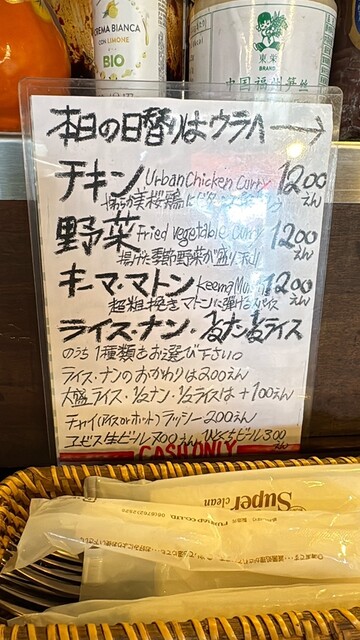 CREMA BIANCA
CON LIMONE
BIO
東栄
BRAND
中国福州笋絲
本日の日替りはウラへ→
チキン Urban Chicken Curry 1200えん
野菜 Fried vegetable Curry 1200えん
揚げた季節野菜が盛り沢山
キーマ・マトン Keema 1200えん
超粗挽きマトンに弾けるスパイス
ライス・ナン・1/2ナン1/2ライス
のうち1種類をお選び下さい。
ライス・ナンのおかわりは200えん
大盛ライス・1/2ナン・1/2ライスは+100えん
チャイ(アイスorホット)ラッシー200えん
エビス生ビール700えん ビール300えん
CASH ONLY
Super clean